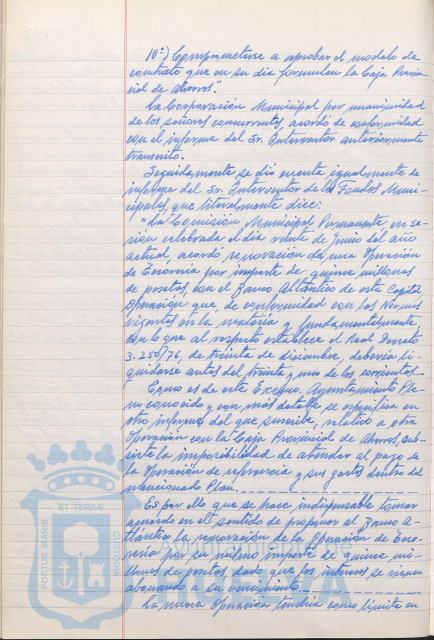 10º) Comprometerse a aprobar el modelo de
contrato que en su día formulen la Caja Provin-
cial de Ahorros".
La Corporación Municipal por unanimidad
de los señores concurrentes acordó de conformidad
con el informe del Sr. Interventor anteriormente
transcrito.
Seguidamente se dio cuenta igualmente de
informe del Sr. Interventor de los Fondos Muni-
cipales, que literalmente dice:
"La Comisión Municipal Permanente, en se-
sión celebrada el día veinte de Junio del año
actual, acordó renovación de una Operación
de Tesorería por importe de quince millones
de pesetas, con el Banco Atlántico de esta Capital,
Operación que, de conformidad con las Normas
vigentes en la materia y, fundamentalmente,
con lo que al respecto establece el Real Decreto
3.250/76, de treinta de diciembre, debería li-
quidarse antes del treinta y uno de los corrientes.-
Como es de este Excmo. Ayuntamiento Ple-
no conocido y con más detalle se especifica en
otro informe del que suscribe, relativo a otra
Operación con la Caja Provincial de Ahorros, sub-
siste la imposibilidad de atender al pago de
la Operación de referencia y sus gastos dentro del
mencionado Plan.
Es por ello que se hace indispensable tomar
acuerdo en el sentido de proponer al Banco A-
tlántico, la renovación de la Operación de Teso-
rería por su mismo importe de quince mi-
llones de pesetas, dado que los intereses se vienen
abonando a su vencimiento.
La nueva Operación tendría como límite en
PORTUS MARIS
ET TERRAE
CUSTODIA
HUELVA